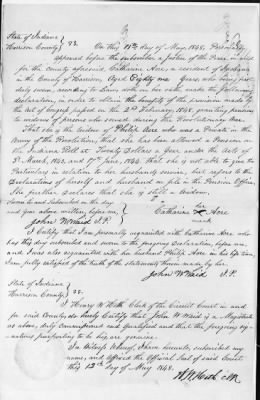 State of Indiana
Harrison County } SS. On this 12th day of May, 1848, Personally
appeared before the subscriber a Justice of the Peace in and
for the county aforesaid Catharine Acre, a resident of
in the County of Harrison, Aged Eighty one Years who being first
duly sworn, according to Law, doth on her oath make the following
declaration, in order to obtain the benefits of the provision made by
the Act of Congress passed on the 2nd February 1848, granting pensions
to widows of persons who served during the Revolutionary War.
That she is the widow of Philip Acre who was a Private in the
Army of the Revolution, that she has been allowed a Pension on
the Indiana Roll at Twenty Dollars a Year under the Acts of
3d March, 1843, and 17th June, 1844 that she is not able to give the
Particulars in relation to her husbands service, but refers to the
Declarations of herself and husband on file in the Pension Office,
She further declares that she is still a Widow.
Sworn to and Subscribed on the day
and year above written, before me
her
Catharine X Acre
mark
John W Waid J.P.
I Certify that I am personally acquainted with Catharine Acre who
has this day subscribed and sworn to the foregoing Declaration, before me,
and I was also acquainted with her husband Philip Acre in his life time,
I am fully satisfied of the truth of the statements therein made by
John W Waid J.P.
State of Indiana
Harrison County } SS.
I Henry W Heth Clerk of the Circuit Court in and
for said County, do hereby Certify that John W Waid is a Magistrate
as above, duly commissioned and qualified and that the foregoing sig-
natures purporting to be his, are genuine.
In Witness Whereof, I have hereunto, subscribed my
name, and affixed the Official Seal of said Court
this 12th day of May 1848.
H W Heth Clk